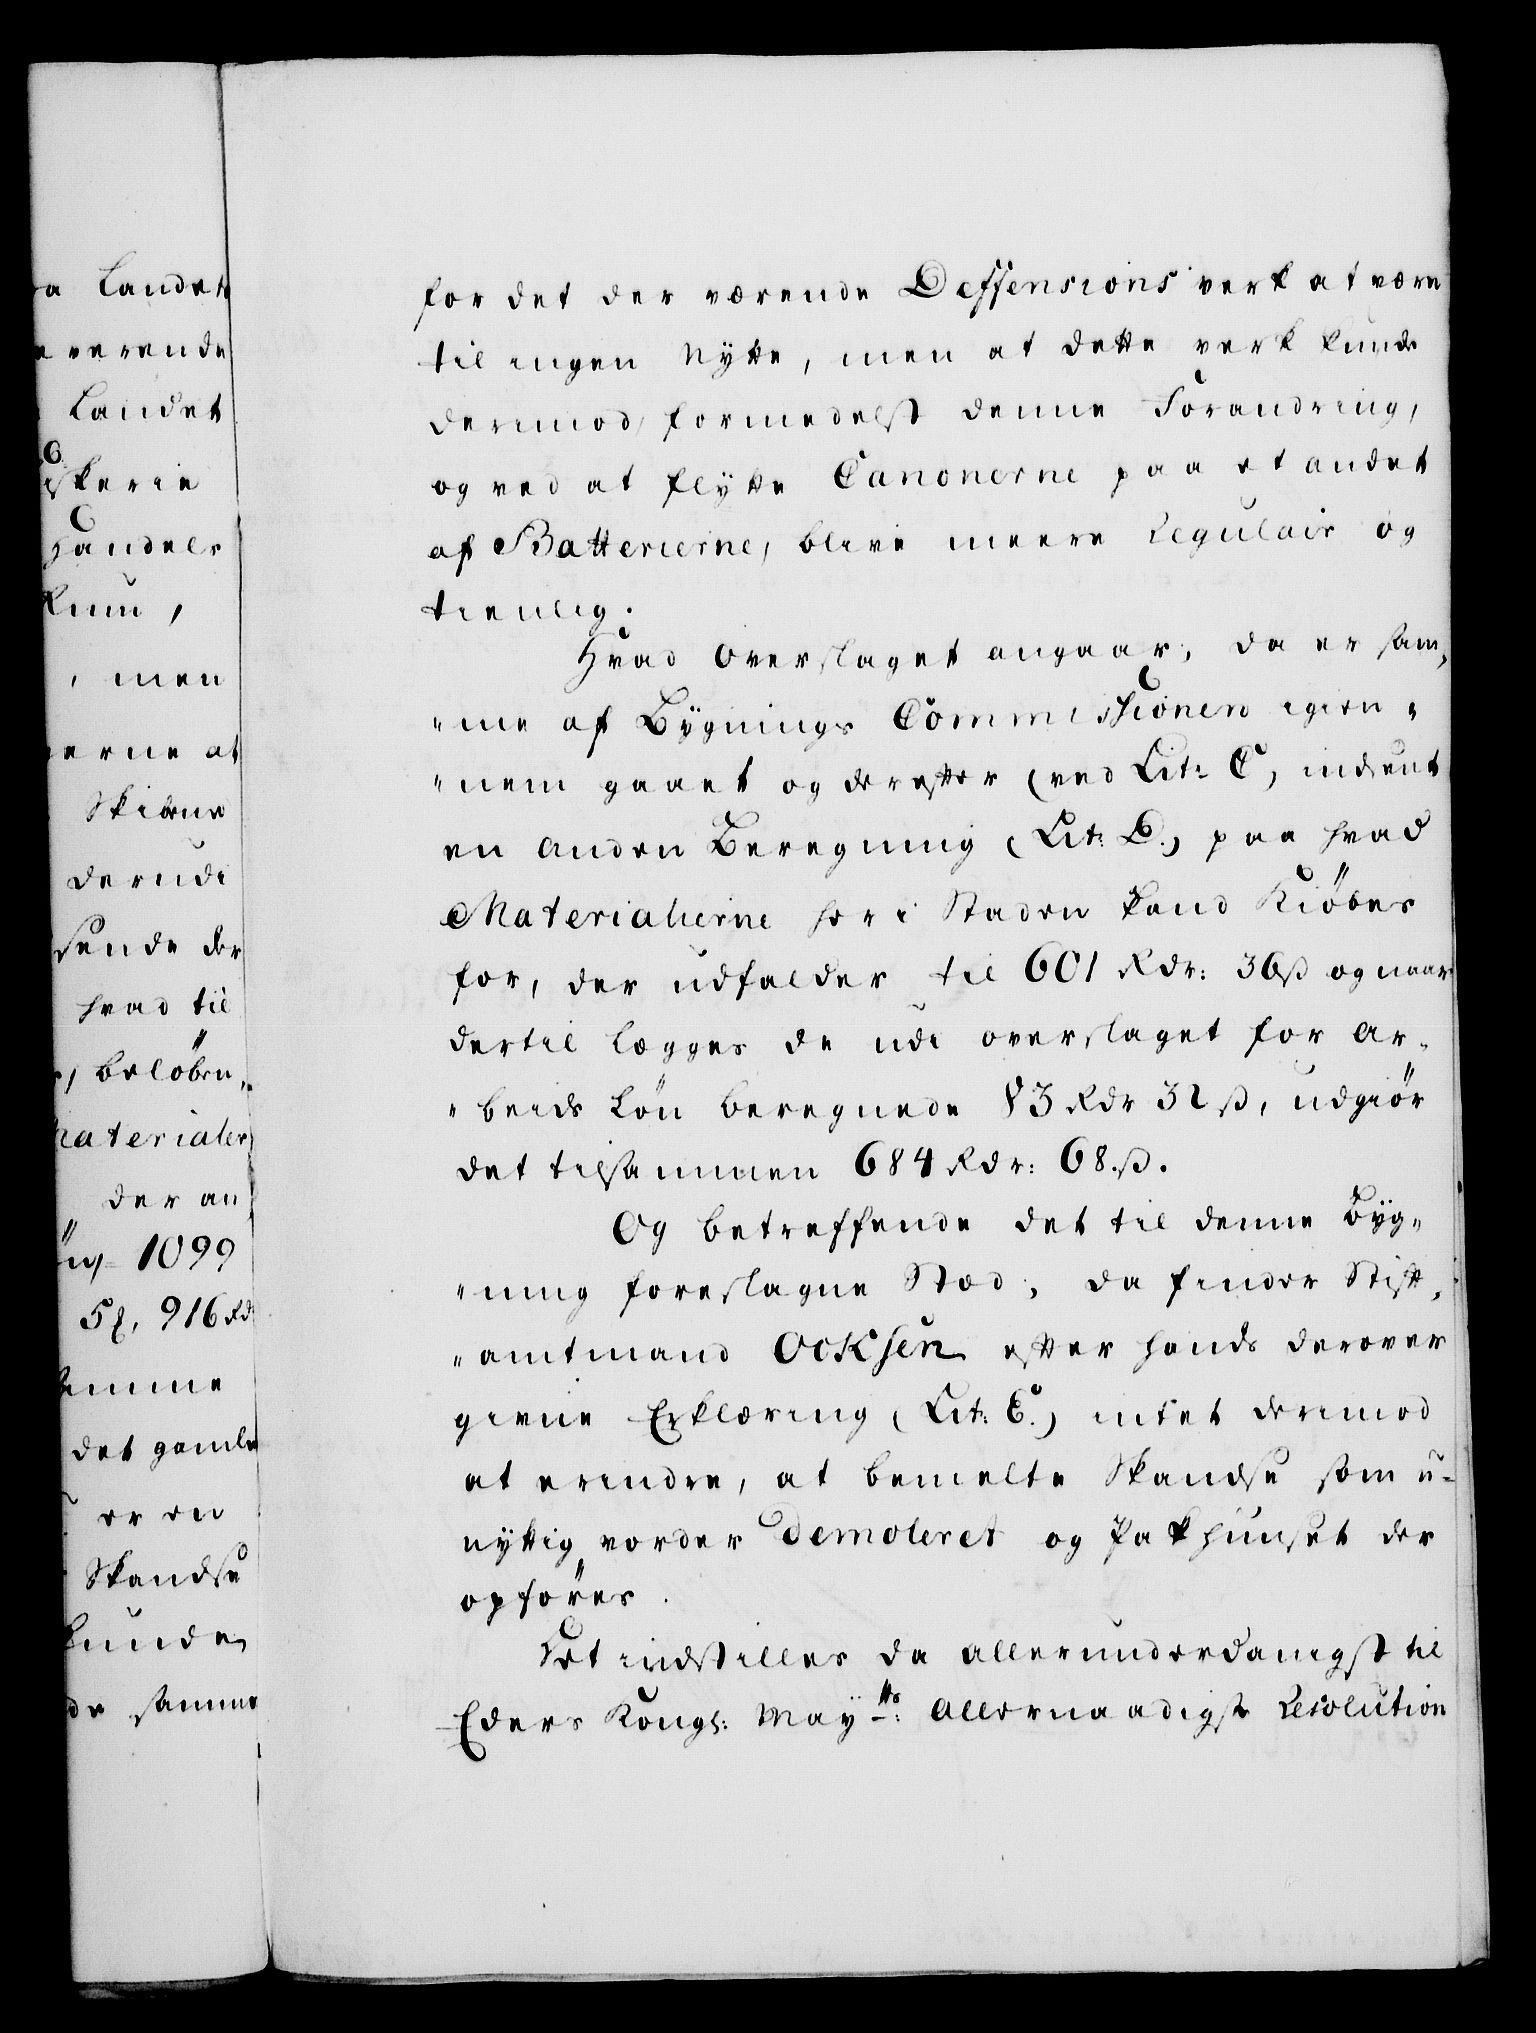 a Landet
e verende
Landet
iskerie
Handels
Rum,
, men
erne at
Skibene
derudi
sende der
hvad til
, beløben„
Materialer
der an
1099
916 Rd
samme
det gamle
er en
Skandse
kunde
de samme
for det der værende Deffensions verk at være
til ingen nytte, men at dette verk kunde
derimod, formedelst denne Forandring,
og ved at flytte Canonerne paa et andet
af Batterierne, blive meere Regulair og
tienlig.
Hvad Overslaget angaar, da er sam„
„me af Bÿgnings Commissionen igien„
„nem gaaet og derefter (ved Lit: C, indsent
en anden Beregning (Lit: D.) paa hvad
Materialierne her i Staden kand Kiöbes
for, der udfalder til 601 Rdr: 36ß og naar
dertil Lægges de udi overslaget for Ar„
„beids Lön beregnede 83 Rdr 32 ß, udgiör
det tilsammen 684 Rdr: 68.ß.
Og betreffende det til denne Bÿg„
„ning foreslagne Stæd, da finder Stift„
„amtmand Ocksen efter hands derover
givne Erklæring (Lit: E.) intet derimod
at erindre, at bemelte Skandse som u-
nÿttig vorder demoleret og Pakhuuset der
opföres.
Det indstilles da allerunderdanigst til
Eders Kongl: Maÿ<sup>tts</sup>: Allernaadigste Resolution